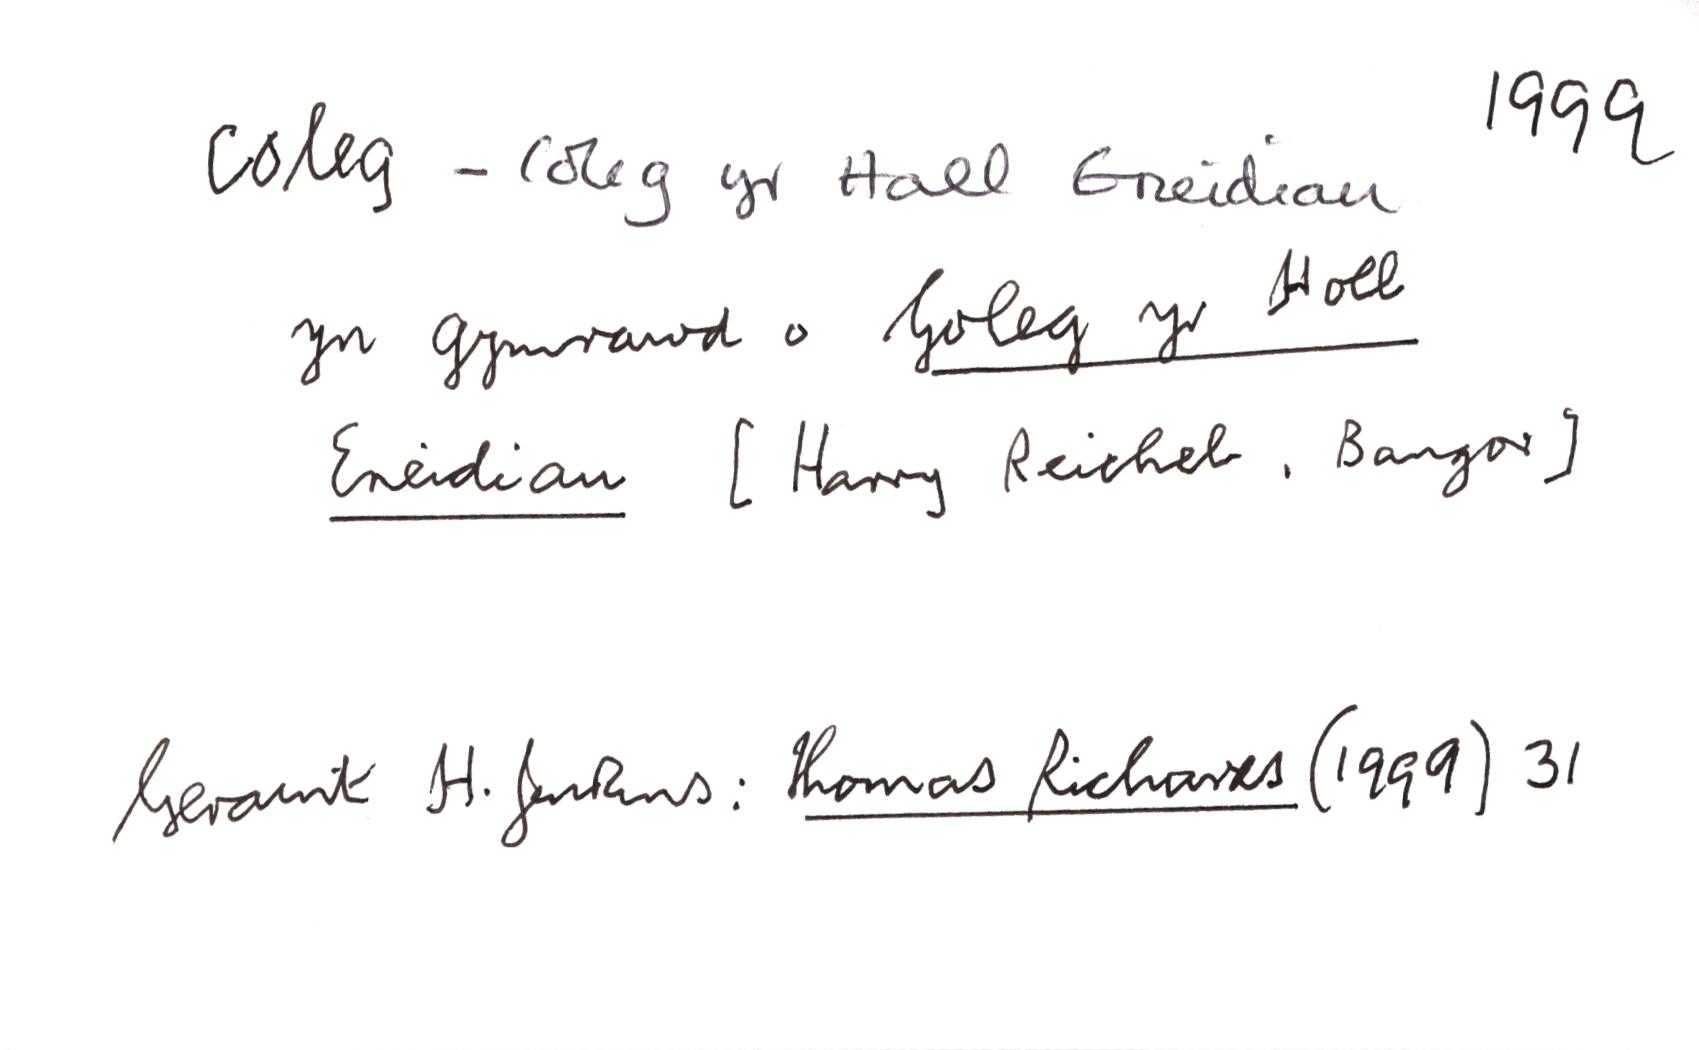 1999
Coleg - Coleg yr Holl Eneidiau
yn gymrawd o Goleg yr Holl
Eneidiau [Harry Reichel, Bangor]
Geraint H. Jenkins: Thomas Richards (1999) 31